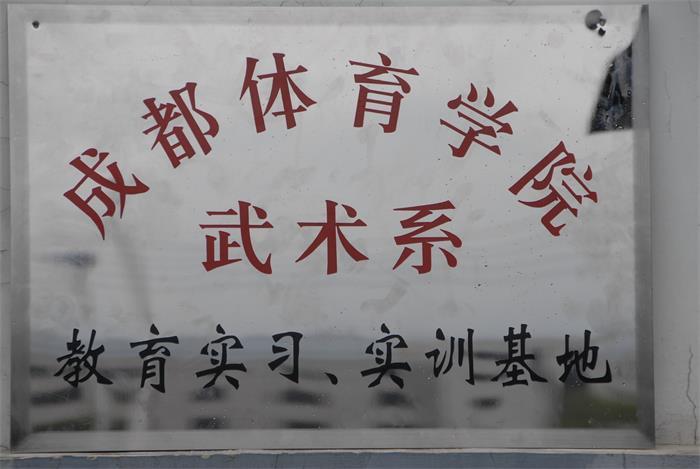 成都体育学院
武术系
教育实习、实训基地